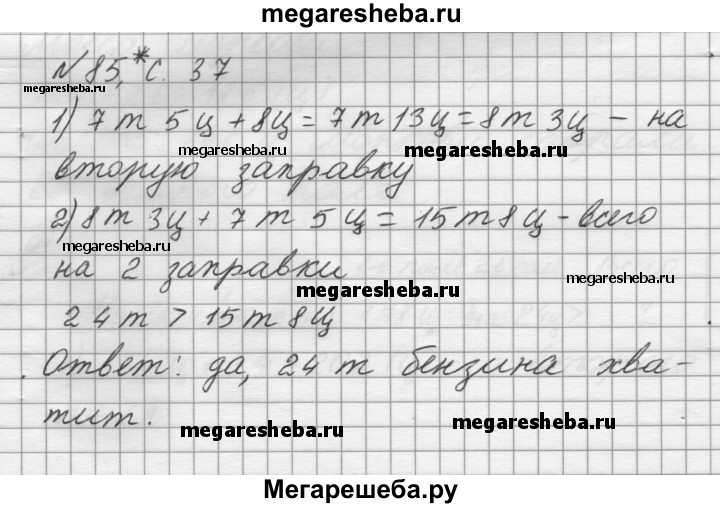 megaresheba.ru
№ 85,* с. 37
megaresheba.ru
1) 7 т 5 ц + 8ц = 7 т 13 ц = 8 т 3 ц - на
megaresheba.ru megaresheba.ru
вторую заправку
2) 8 т 3 ц + 7 т 5 ц = 15 т 8 ц - всего
megaresheba.ru
на 2 заправки
megaresheba.ru megaresheba.ru
24 т > 15 т 8 ц
Ответ: да, 24 т бензина хва-
тит.
megaresheba.ru megaresheba.ru
Мегарешеба.ру